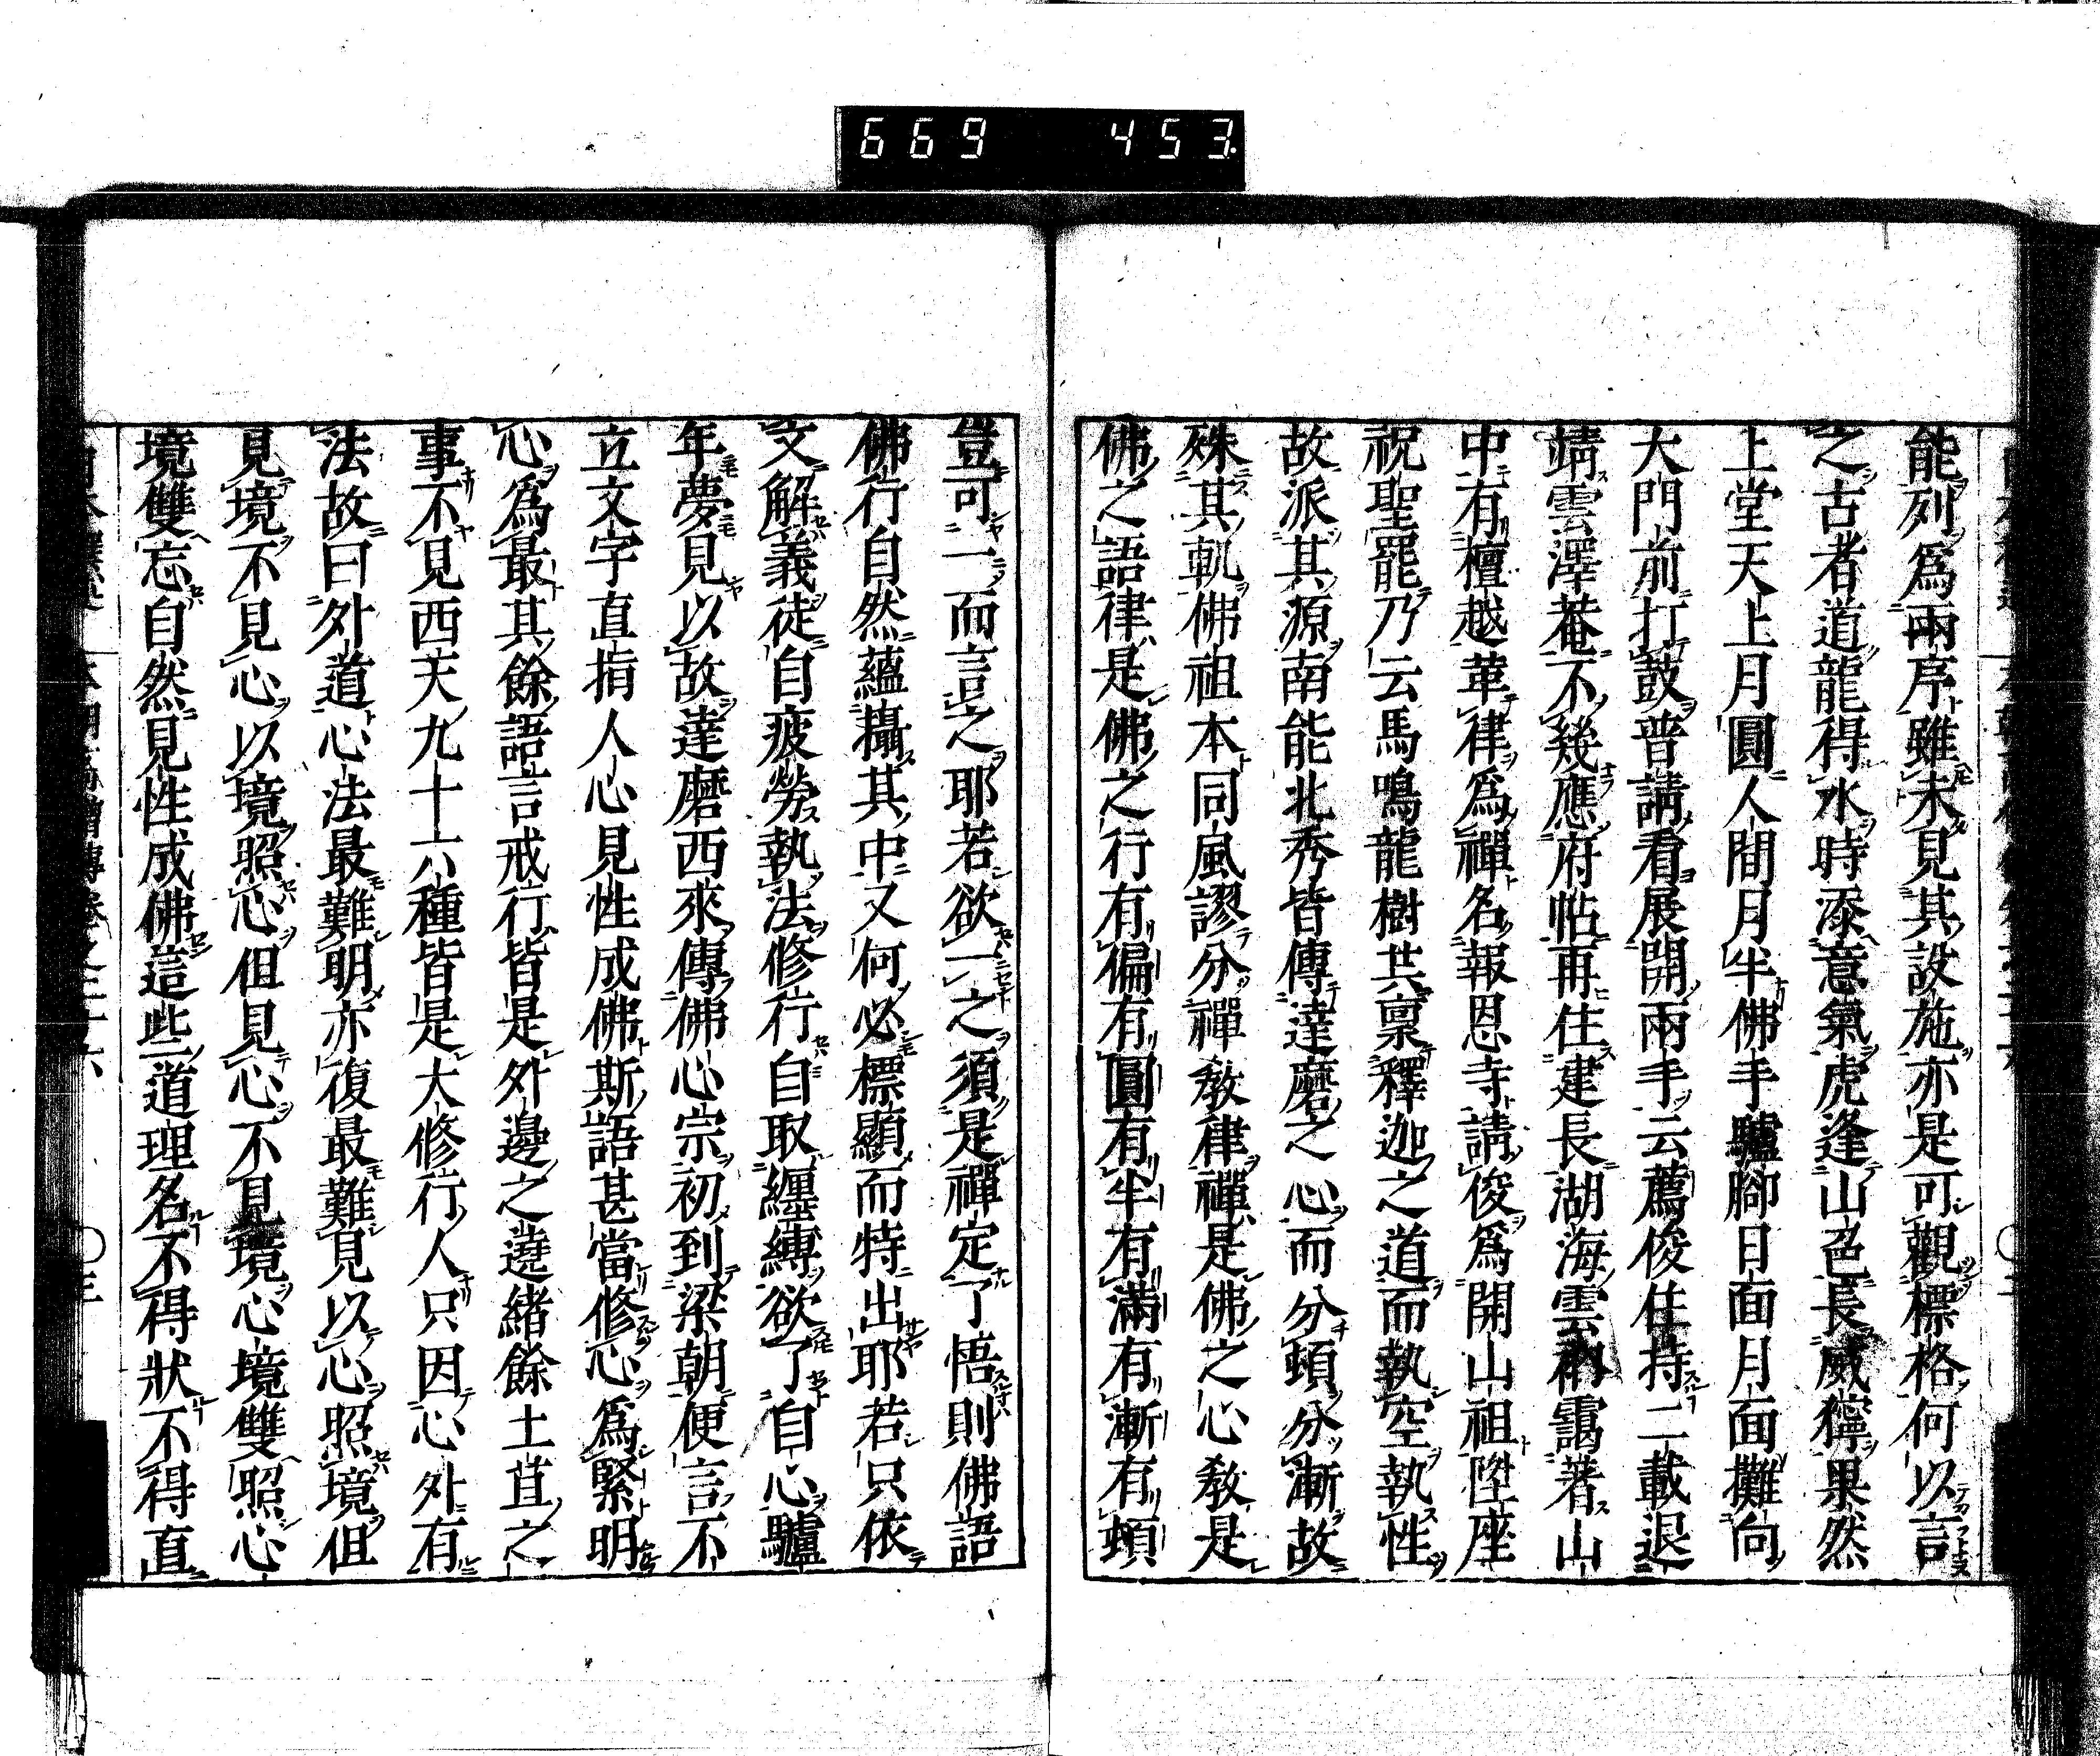 669 453
能列爲兩序雖未見其設施亦是可觀標格何以言
之古者道龍得水時添意氣虎逢山色長威獰果然
上堂天上月圓人間月半佛手驢脚日面月面攤向
大門前打鼓普請看展開兩手云薦俊住持二載退
靖雲澤菴不幾應府帖再住建長湖海雲衲靄著山
中有檀越革律爲禪名報恩寺請俊爲開山祖陞座
祝聖罷乃云馬鳴龍樹共稟釋迦之道而執空執性
故派其源南能北秀皆傳達磨之心而分頓分漸故
殊其軌佛祖本同風謬分禪敎律禪是佛之心敎是
佛之語律是佛之行有偏有圓有半有滿有漸有頓
豈可一而言之耶若欲一之須是禪定了悟則佛語
佛行自然蘊攝其中又何必標顯而特出耶若只依
文解義徒自疲勞執法修行自取纒縛欲了自心驢
年夢見以故達磨西來傳佛心宗初到梁朝便言不
立文字直指人心見性成佛斯語甚當修心爲緊明
心爲最其餘語言戒行皆是外邊之遶緒餘土苴之
事不見西天九十六種皆是大修行人只因心外有
法故曰外道心法最難明亦復最難見以心照境但
見境不見心以境照心但見心不見境心境雙照心
境雙忘自然見性成佛這些道理名不得狀不得直